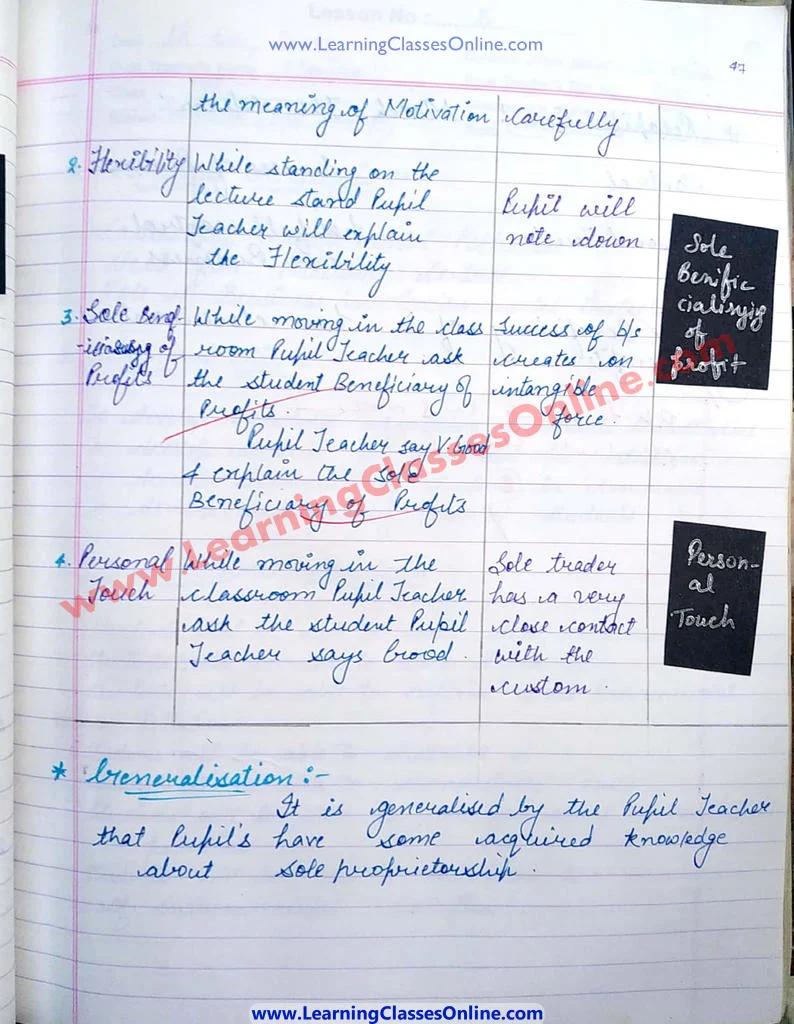 www.LearningClassesOnline.com
47
the meaning of Motivation
carefully
2. Flexibility
While standing on the
lecture stand Pupil
Teacher will explain
the Flexibility
Pupil will
note down
3. Sole Benef-
of
Profits
While moving in the class
room Pupil Teacher ask
the student Beneficiary of
Profits.
Pupil Teacher say V. Good
& explain the Sole
Beneficiary of Profits
Success of b/s
creates an
intangible
force.
Sole
Benific
cialisying
of
profit
4. Personal
Touch
While moving in the
classroom Pupil Teacher
ask the student Pupil
Teacher says Good.
Sole trader
has a very
close contact
with the
custom.
Person-
al
Touch
www.LearningClassesOnline.com
* Generalisation :-
It is generalised by the Pupil Teacher
that Pupil's have some acquired knowledge
about sole proprietorship.
www.LearningClassesOnline.com